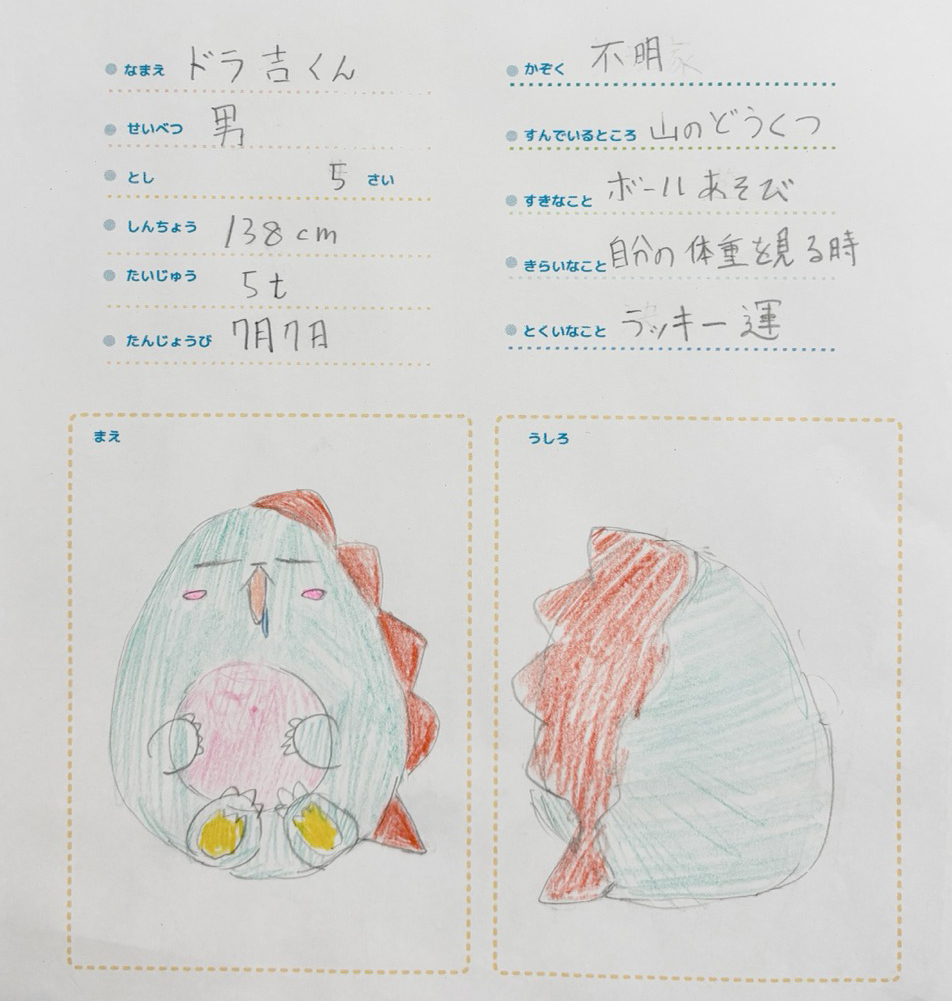 なまえ ドラ吉くん
せいべつ 男
とし 5 さい
しんちょう 138cm
たいじゅう 5t
たんじょうび 7月7日
かぞく 不明
すんでいるところ 山のどうくつ
すきなこと ボールあそび
きらいなこと 自分の体重を見る時
とくいなこと ラッキー運
まえ
うしろ